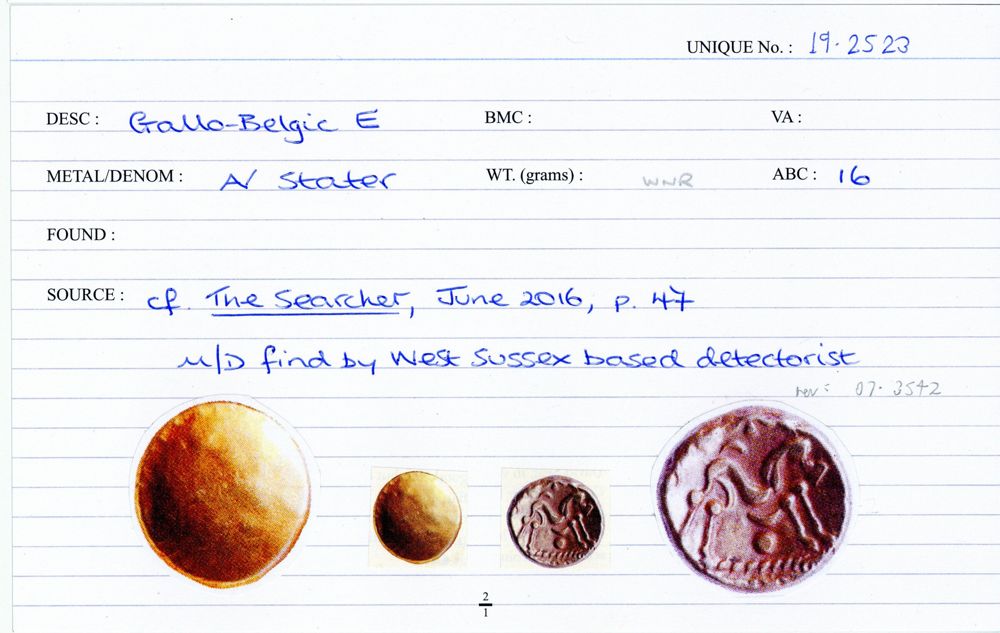 UNIQUE No. : 19.2523
DESC : Gallo-Belgic E BMC : VA :
METAL/DENOM : A/ Stater WT. (grams) : WNR ABC : 16
FOUND :
SOURCE : cf. The Searcher, June 2016, p. 47
M/D find by West Sussex based detectorist
rev: 07.3542
2
1